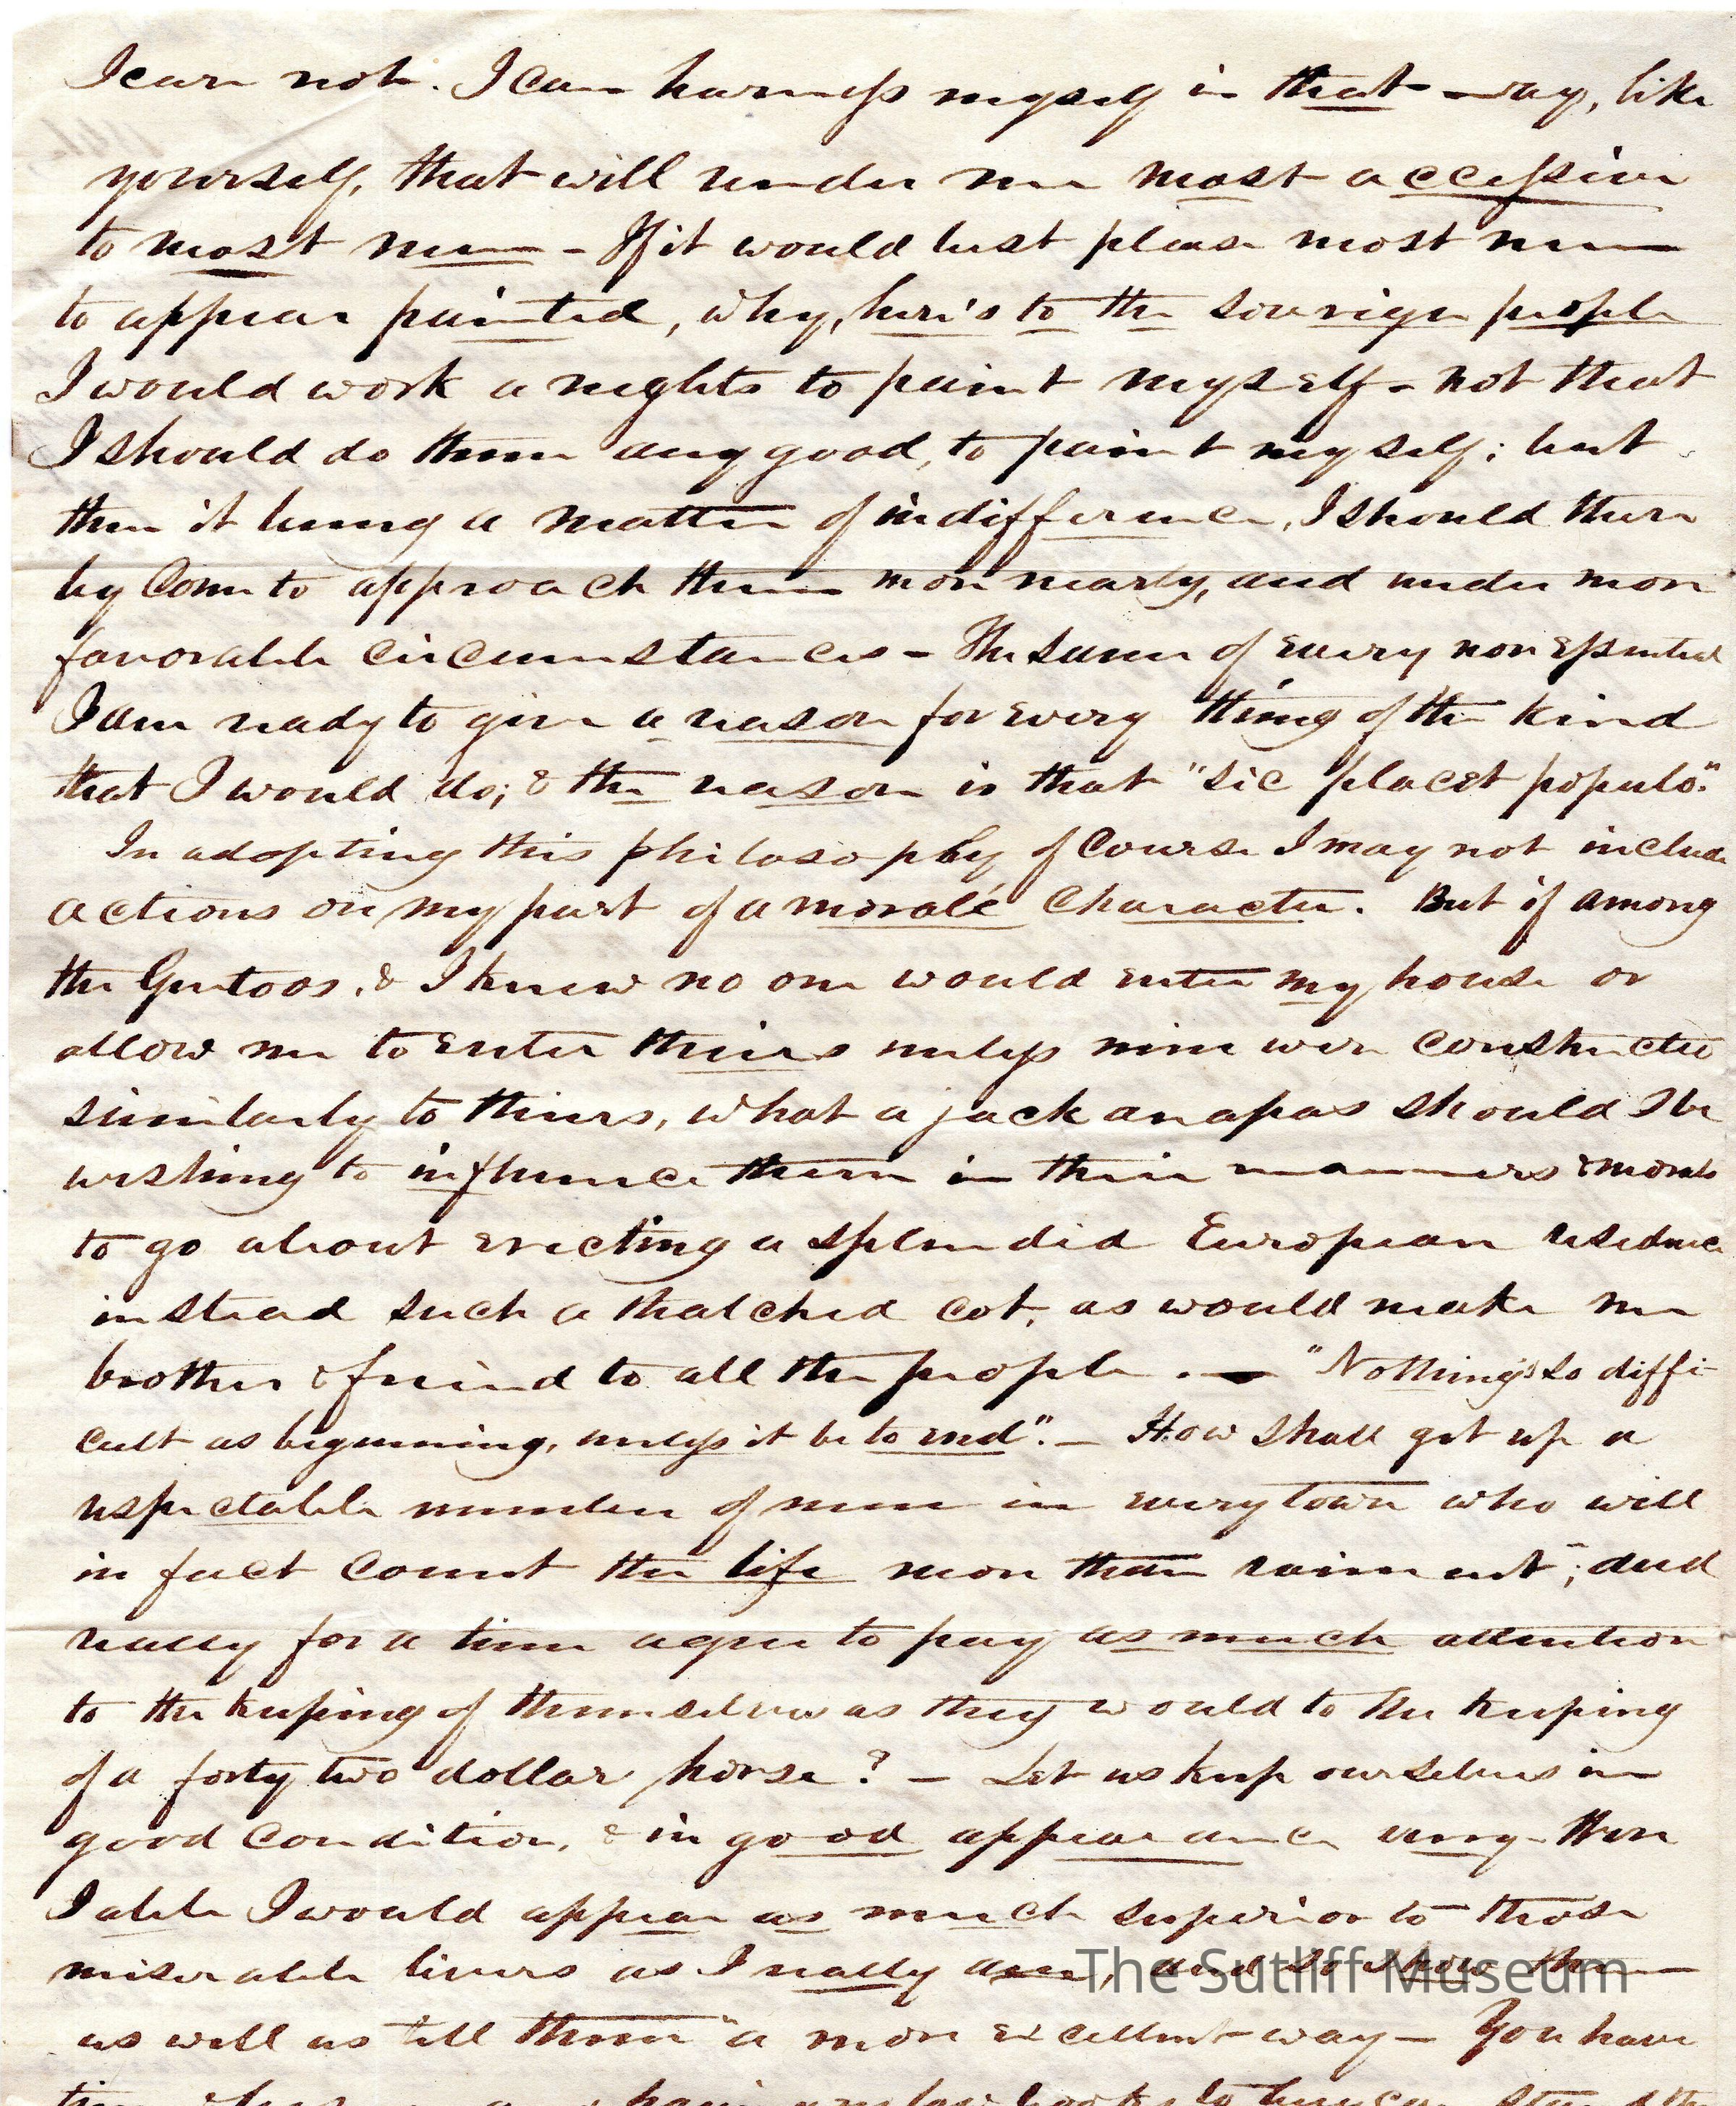 I care not. I can harness myself in that way, like
yourself, that will render me most accessive
to most men - If it would best please most men
to appear painted, why, here's to the soverign people
I would work a nights to paint myself - not that
I should do them any good, to paint myself; but
then it being a matter of indifference, I should there
by come to approach them more nearly, and under more
favorable circumstances - The same of every non essential
I am ready to give a reason for every thing of the kind
that I would do; & the reason is that "sic placet populo."
In adopting this philosophy of course I may not include
actions on my part of a morale character. But if among
the Gentoos, & I knew no one would enter my house or
allow me to enter theirs unless mine were constructed
similarly to theirs, what a jackanapes should I be
wishing to influence them in their manners & morals
to go about erecting a splendid European residence
instead such a thatched cot, as would make me
brother & friend to all the people. — "Nothing's so diffi-
cult as beginning, unless it be to end". — How shall get up a
respectable number of men in every town who will
in fact count the life more than raiment"; and
really for a time agree to pay as much attention
to the keeping of themselves as they would to the keeping
of a forty two dollar horse? — Let us keep ourselves in
good condition, & in good appearance
I able I would appear as much superior to those
miserable livers as I really am, and so show them
as well as tell them "a more excellent way — You have
The Sutliff Museum